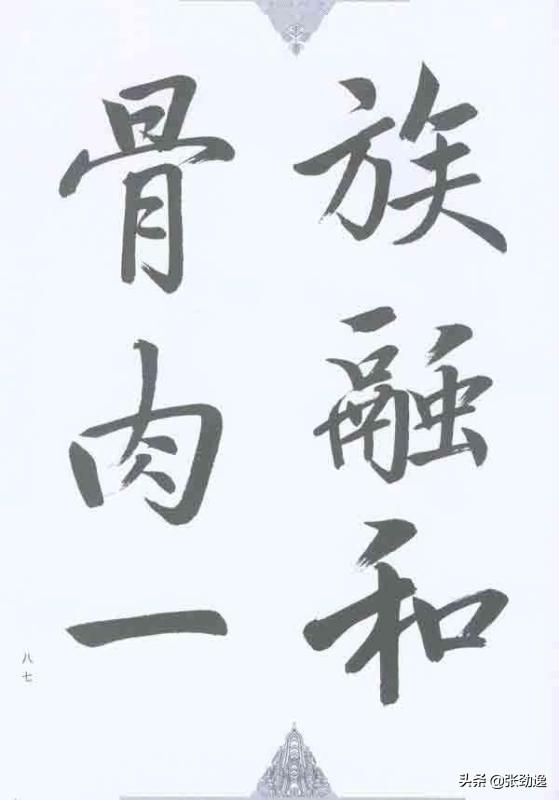 族融和
骨肉一
八七
头条 @张劲逸